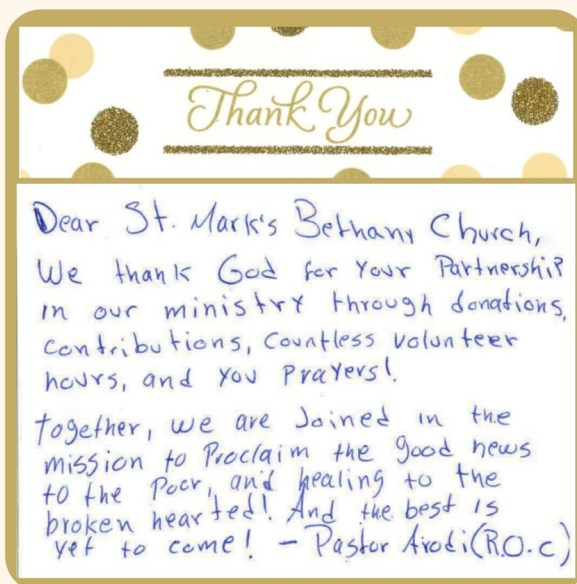 Thank You
Dear St. Mark's Bethany Church,
We thank God for Your Partnership
in our ministry through donations,
contributions, Countless volunteer
hours, and you Prayers!
together, we are Joined in the
mission to Proclaim the good news
to the Poor, and healing to the
broken hearted! And the best is
yet to come! - Pastor Arodi (R.O.c)